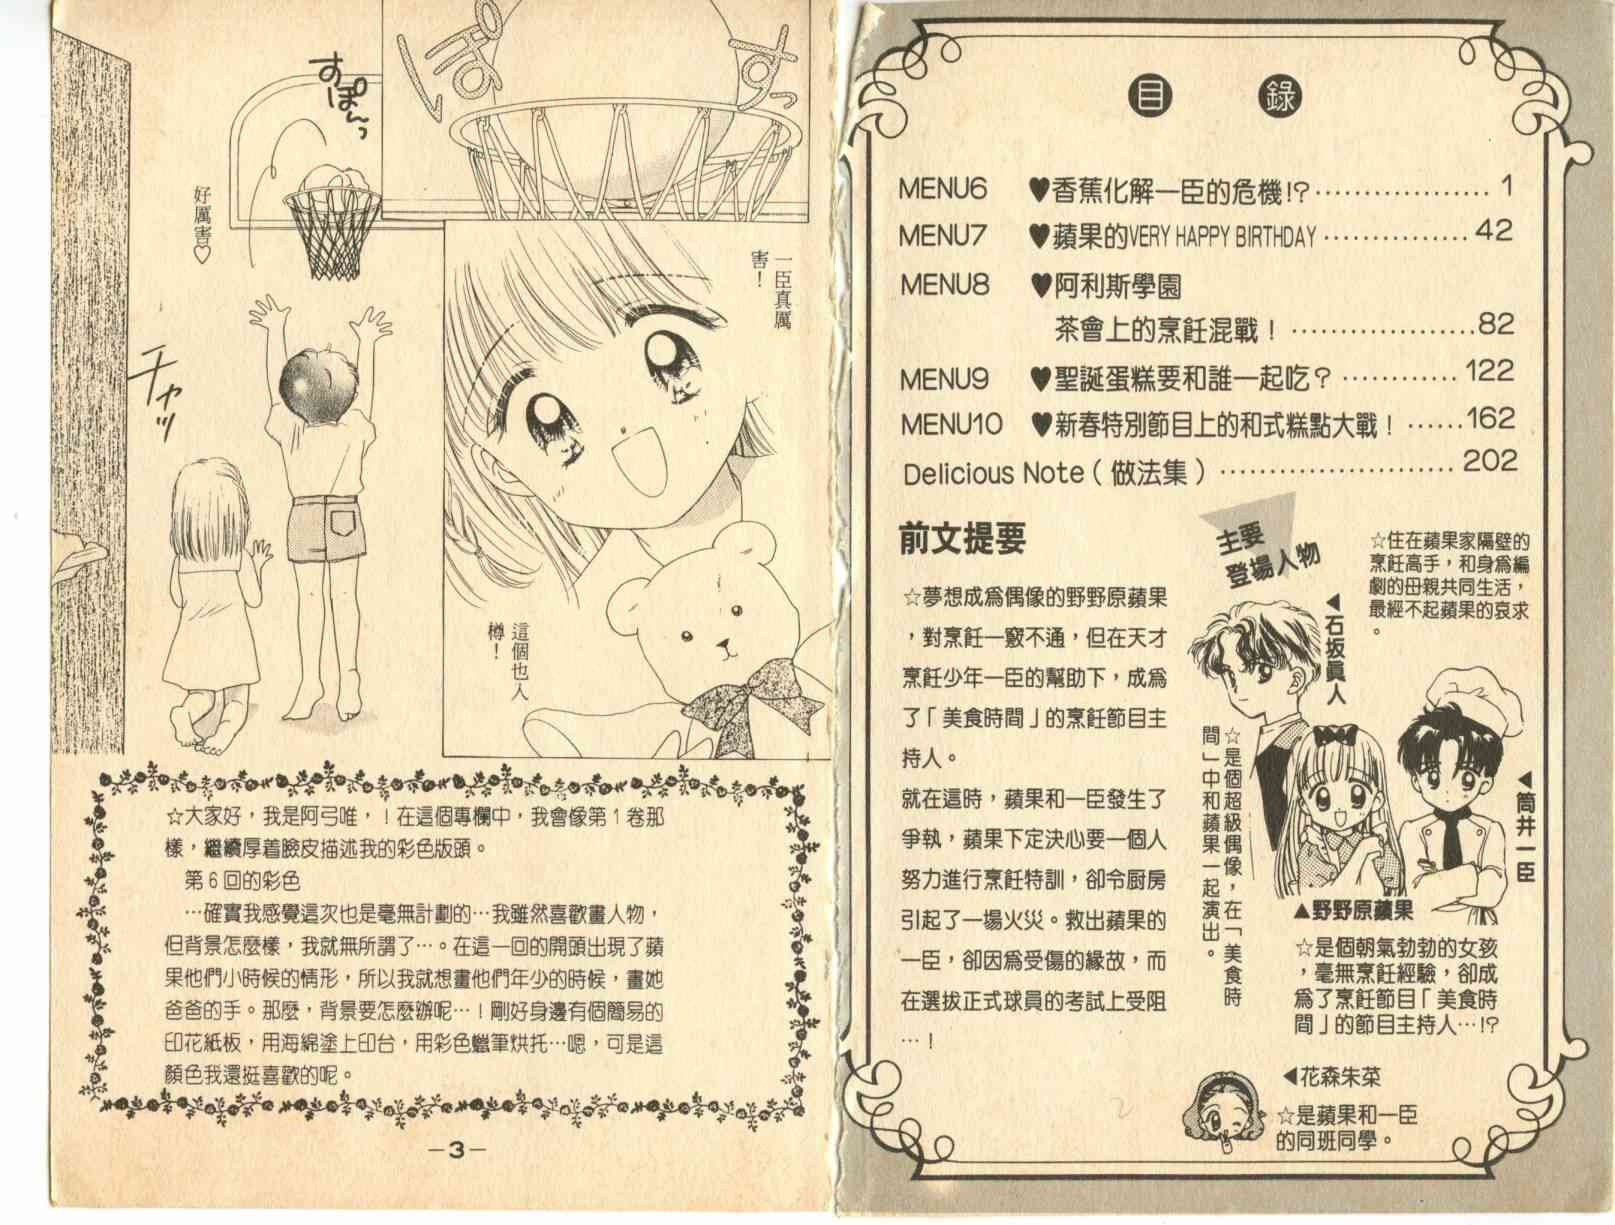 目 錄
MENU6 ♥香蕉化解一臣的危機!?………………1
MENU7 ♥蘋果的VERY HAPPY BIRTHDAY……………42
MENU8 ♥阿利斯學園
茶會上的烹飪混戰！………………82
MENU9 ♥聖誕蛋糕要和誰一起吃？…………122
MENU10 ♥新春特別節目上的和式糕點大戰！……162
Delicious Note（做法集）……………………202
前文提要
☆夢想成爲偶像的野野原蘋果
，對烹飪一竅不通，但在天才
烹飪少年一臣的幫助下，成爲
了「美食時間」的烹飪節目主
持人。
就在這時，蘋果和一臣發生了
爭執，蘋果下定決心要一個人
努力進行烹飪特訓，卻令厨房
引起了一場火災。救出蘋果的
一臣，卻因爲受傷的緣故，而
在選拔正式球員的考試上受阻
…！
主要
登場人物
☆住在蘋果家隔壁的
烹飪高手，和身爲編
劇的母親共同生活，
最經不起蘋果的哀求
。
◀石坂眞人
☆是個超級偶像，在「美食時
間」中和蘋果一起演出。
◀筒井一臣
▲野野原蘋果
☆是個朝氣勃勃的女孩
，毫無烹飪經驗，卻成
爲了烹飪節目「美食時
間」的節目主持人…!?
◀花森朱菜
☆是蘋果和一臣
的同班同學。
2
ぱ
すっ
すぽんっ
好厲害♡
チャッ
一臣真厲
害！
這個也入
樽！
☆大家好，我是阿弓唯，！在這個專欄中，我會像第1卷那
樣，繼續厚着臉皮描述我的彩色版頭。
第6回的彩色
…確實我感覺這次也是毫無計劃的…我雖然喜歡畫人物，
但背景怎麼樣，我就無所謂了…。在這一回的開頭出現了蘋
果他們小時候的情形，所以我就想畫他們年少的時候，畫她
爸爸的手。那麼，背景要怎麼辦呢…！剛好身邊有個簡易的
印花紙板，用海綿塗上印台，用彩色蠟筆烘托…嗯，可是這
顏色我還挺喜歡的呢。
－3－